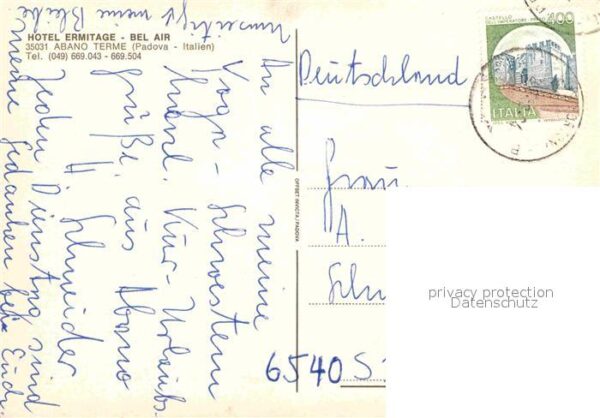 HOTEL ERMITAGE - BEL AIR
35031 ABANO TERME (Padova - Italien)
Tel. (049) 669.043 - 669.504
Umseitig meine Bleibe
An alle meine
Kegel-Schwestern
herzl. Kur-Urlaubs-
grüße aus Abano
H. Schneider
Jeden Dienstag sind
meine Gedanken bei Euch
OFFSET INVICTA-PADOVA
CASTELLO
DELL'IMPERATORE - PRATO
400
ITALIA
Deutschland
Frau
A.
Schn
6540 S
privacy protection
Datenschutz